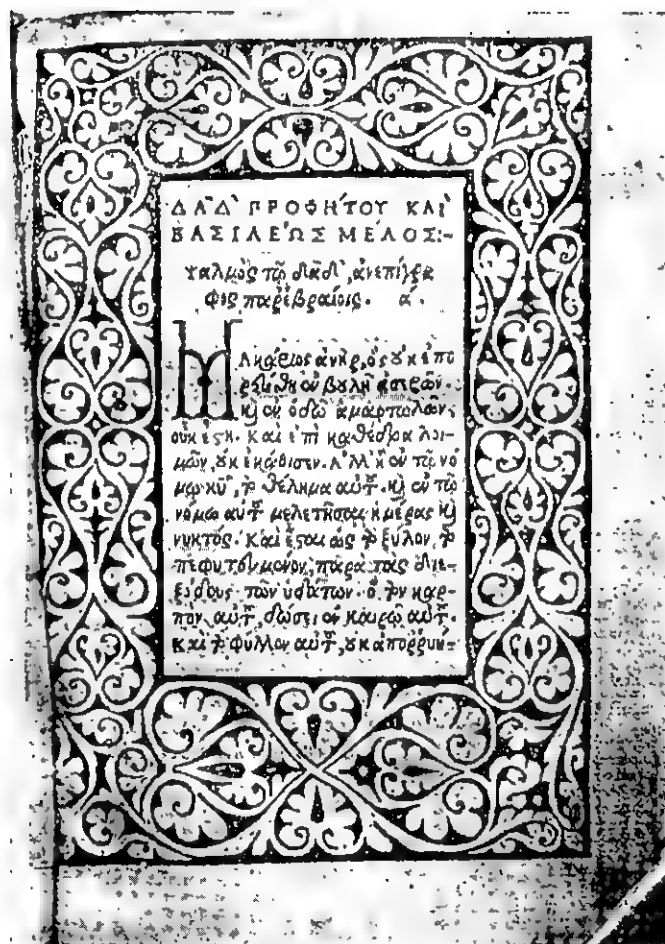 ΔΑΔ ΠΡΟΦΉΤΟΥ ΚΑῚ
ΒΑΣΙΛΈΩΣ ΜΈΛΟΣ:-
Ψαλμὸς τῷ δαδ̀, ἀνεπίγρα
φος παρ' ἑβραίοις. α.
ΜΑκάριος ἀνὴρ, ὃς ȣ̓κ ἐπο
ρεύθη ἐν βȣλῇ ἀσεβῶν.
κỳ ἐν ὁδῷ ἁμαρτωλῶν,
οὐκ ἔστη. Καὶ ἐπὶ καθέδρᾳ λοι-
μῶν, ȣ̓κ ἐκάθισεν. Ἀλλ' ἢ ἐν τῷ νό
μῳ κυ̃, τὸ θέλημα αὐτȣ̃. κỳ ἐν τῷ
νόμῳ αὐτȣ̃ μελετήσει ἡμέρας κỳ
νυκτός. Καὶ ἔσται ὡς τὸ ξύλον, τὸ
πεφυτευμένον, παρὰ τὰς διε-
ξόδους τῶν ὑδάτων. ὃ τὸν καρ-
πὸν αὐτȣ̃, δώσει ἐν καιρῷ αὐτȣ̃.
Καὶ τὸ φύλλον αὐτȣ̃, ȣ̓κ ἀπορρυή-